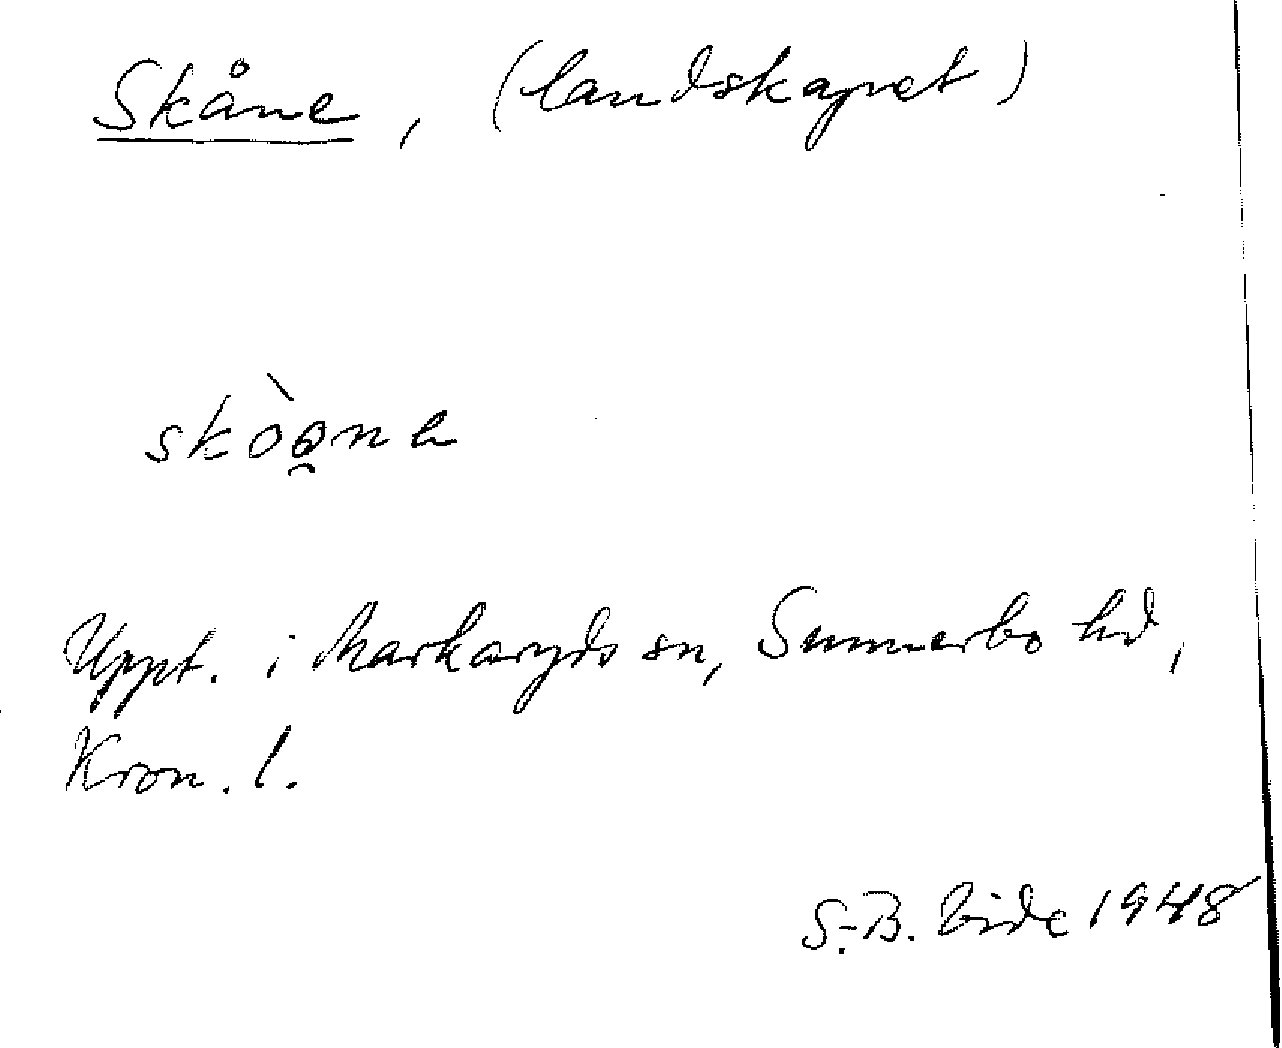 Skåne, (landskapet)
Uppt. i Markaryds sn, Sunnerbo hd,
Kron. l.
S.-B. Vide 1948